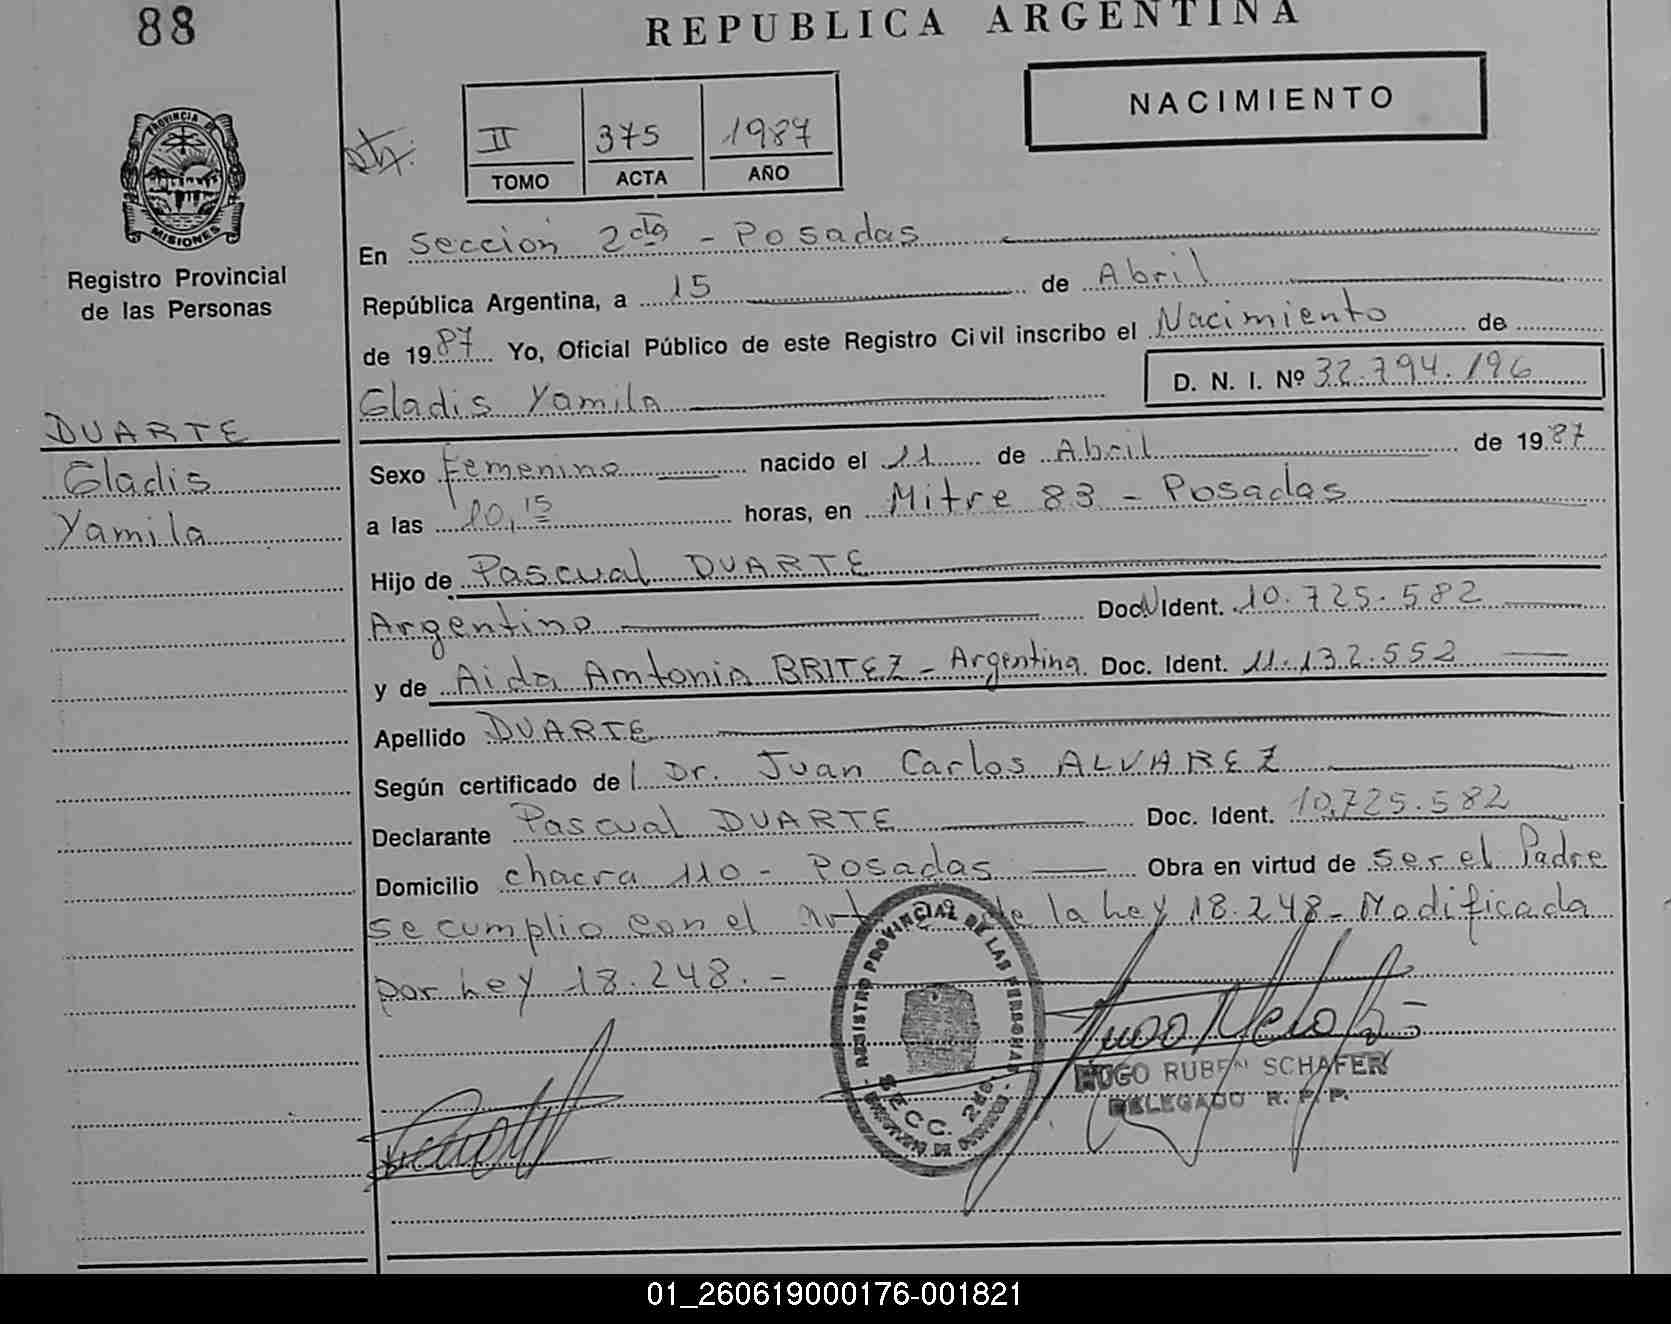 88
REPUBLICA ARGENTINA
NACIMIENTO
II 375 1987
TOMO ACTA AÑO
PROVINCIA DE
MISIONES
Registro Provincial
de las Personas
En Sección 2da - Posadas
República Argentina, a 15 de Abril
de 1987 Yo, Oficial Público de este Registro Civil inscribo el Nacimiento de
Gladis Yamila D. N. I. Nº 32.794.196
DUARTE
Gladis
Yamila
Sexo Femenino nacido el 11 de Abril de 1987
a las 10,15 horas, en Mitre 83 - Posadas
Hijo de Pascual DUARTE
Argentino Doc. Ident. 10.725.582
y de Aida Amtonia BRITEZ - Argentina Doc. Ident. 11.132.552
Apellido DUARTE
Según certificado de l Dr. Juan Carlos ALVAREZ
Declarante Pascual DUARTE Doc. Ident. 10,725.582
Domicilio chacra 110 - Posadas Obra en virtud de ser el Padre
se cumplio con el art de la Ley 18.248 - Modificada
por Ley 18.248. -
REGISTRO PROVINCIAL DE LAS PERSONAS
SECC. 2da.
HUGO RUBEN SCHAFER
DELEGADO R. P. P.
01_260619000176-001821